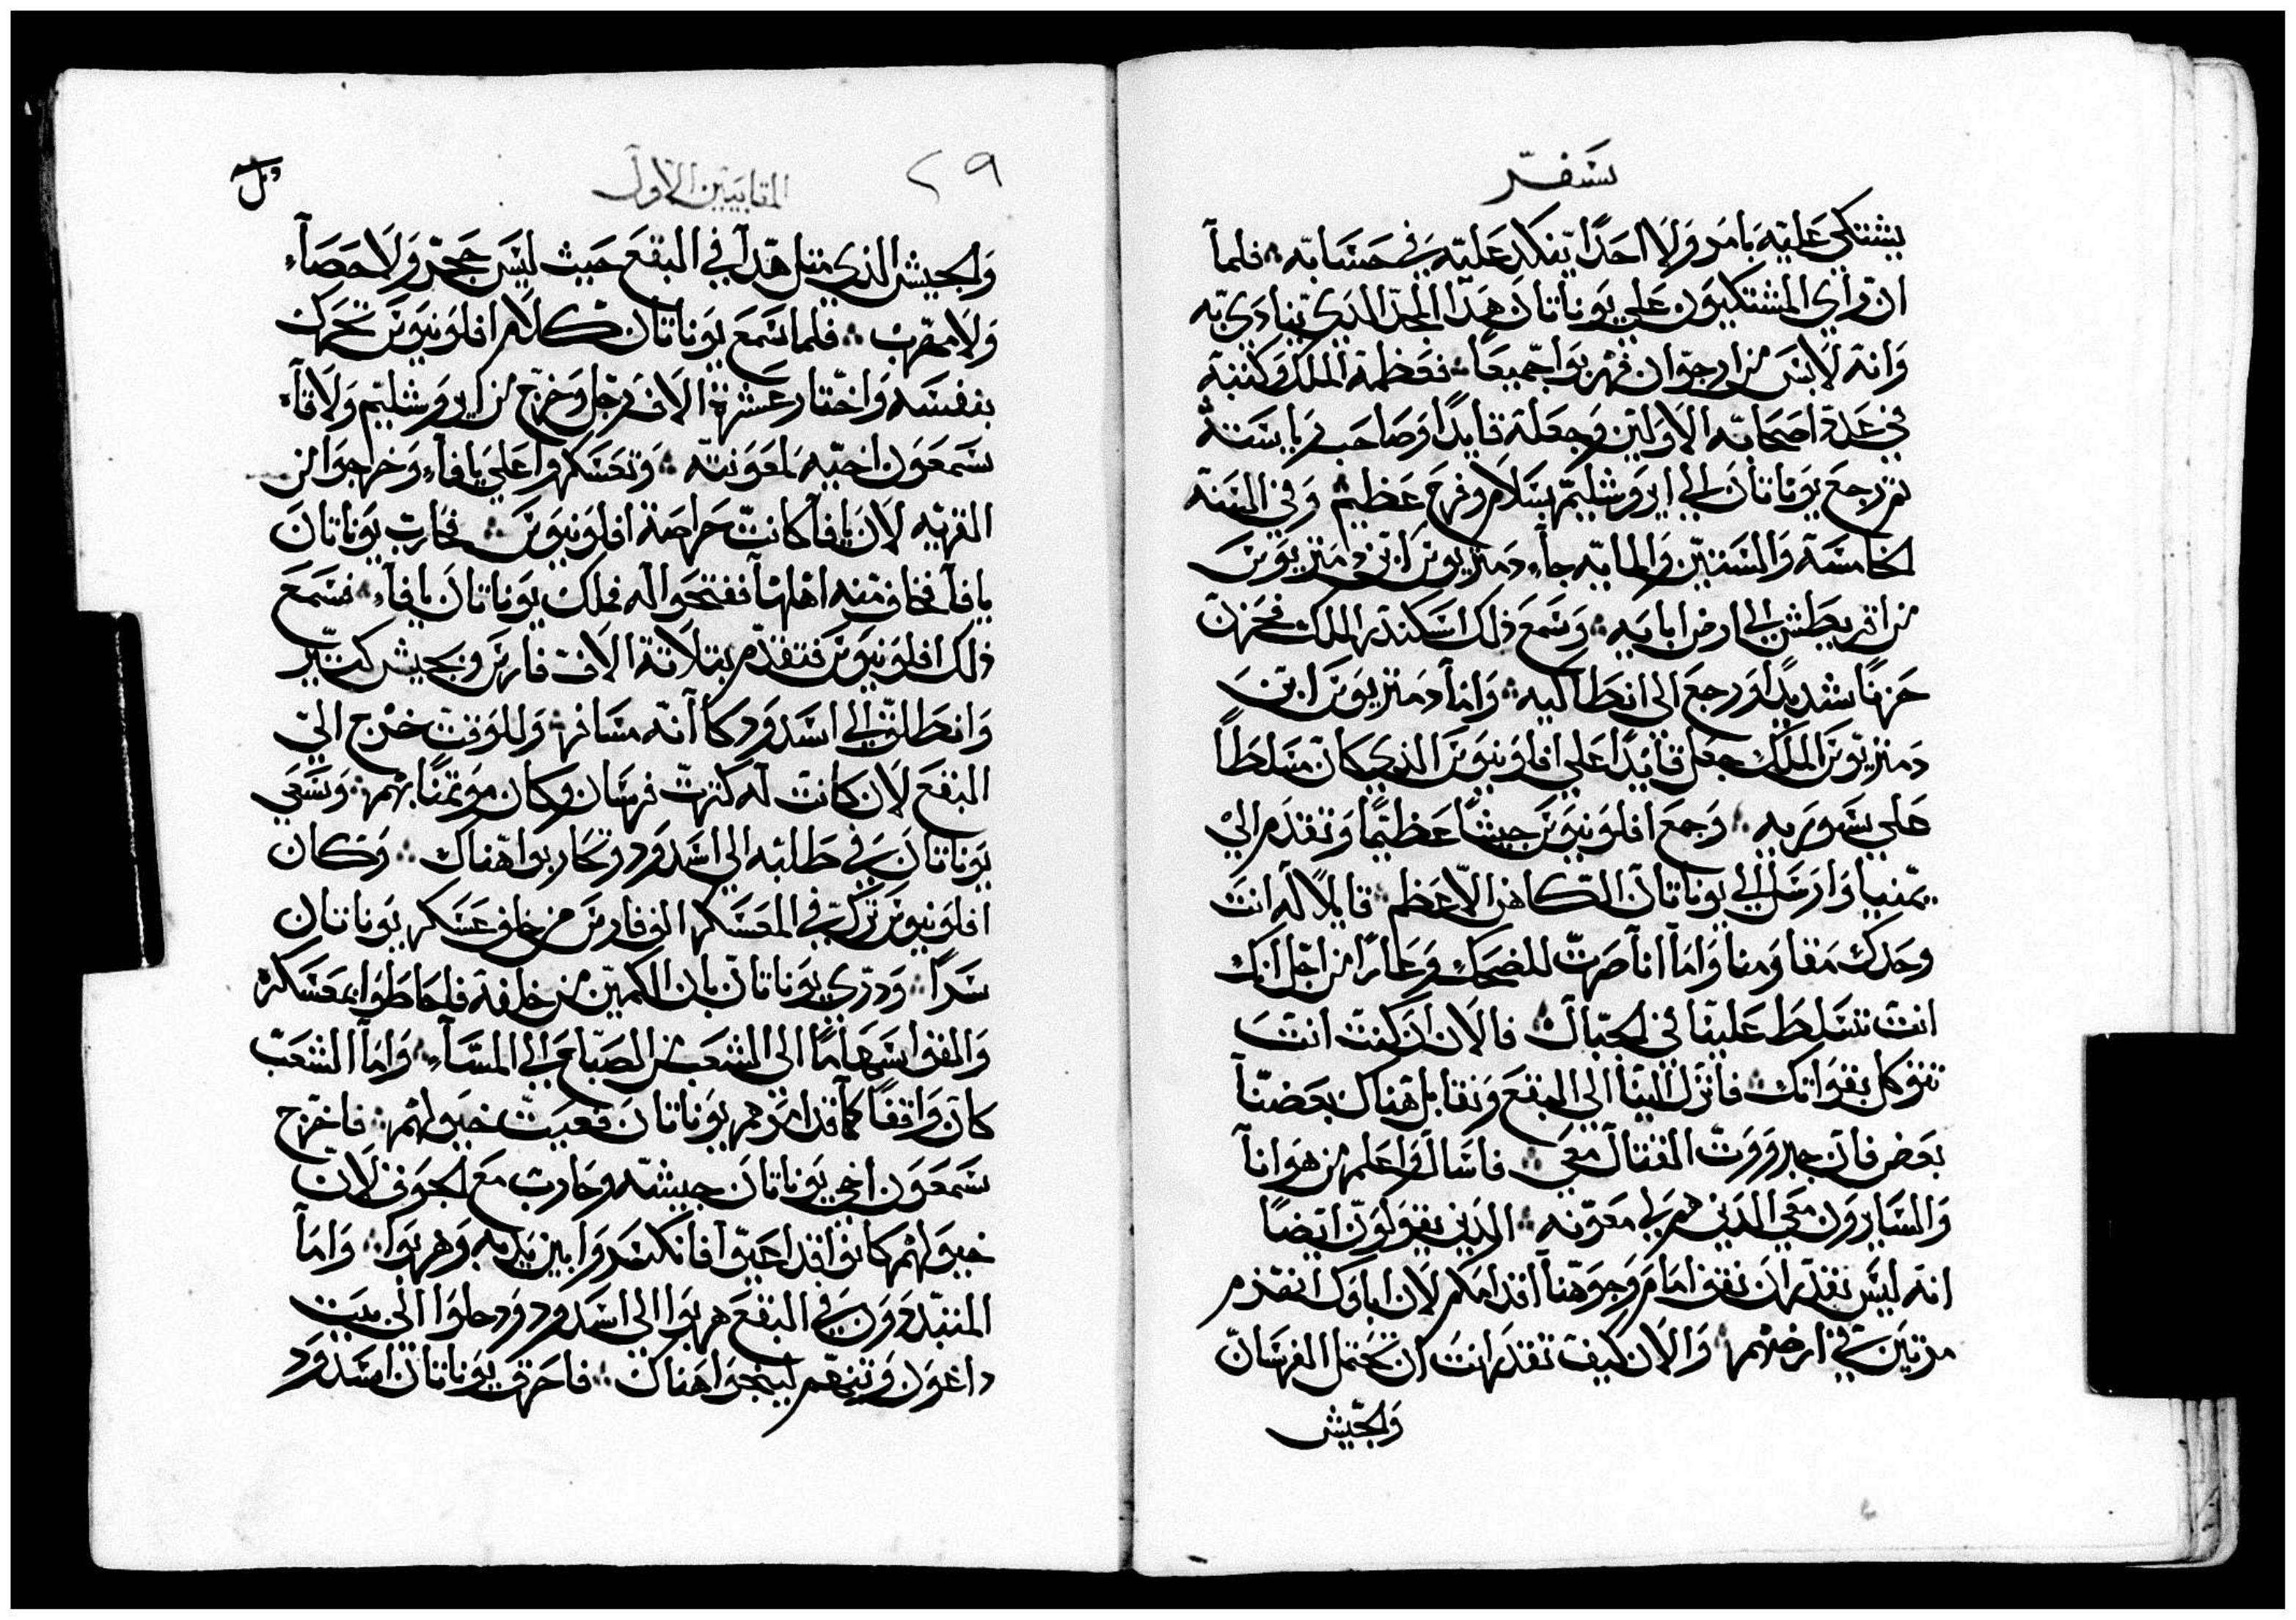 سفر
يشتكي عليه بامر ولا احدًا يتكلد عليه في حسابه ؞ فلما
ان رأي المشتكيون علي يوناتان هذا المجد الذي ينادي به
وانه لابس ارجوان فهربوا جميعًا ؞ فعظمه الملك وكتبه
في عدة اصحابه الاولين وجعله قايدًا وصاحب رياسته
ثم رجع يوناتان الي ايروشليم بسلام وفرح عظيم ؞ وفي السنه
الخامسه والستين والمايه جاء دمتريوس ابن دمتريوس
من اقريطش الي ارض ابايه ؞ وسمع ذلك اسكندر الملك فحزن
حزنًا شديدًا ورجع الي انطاكيه ؞ واما دمتريوس ابن
دمتريوس الملك جعل قايدًا علي افلونيوس الذي كان مسلطًا
علي سوريه ؞ وجمع افلونيوس جيشًا عظيمًا وتقدم الي
يمنيا وارسل الي يوناتان الكاهن الاعظم ؞ قايلًا له انت
وحدك مقاومنا واما انا صرت للضحك وعارًا من اجل انك
انت تتسلط علينا في الجبال ؞ فالان ان كنت انت
تتوكل بقواتك ؞ فانزل الينا الي البقع ونقابل هناك بعضنا
بعض فان جبروت القتال معي ؞ فاسال واعلم من هو انا
والسايرون معي الذين هم لي معونه ؞ الذين يقولون ايضًا
انه ليس تقدر ان تقف امام وجوهنا اقدامكم لان اباوك انهزم
مرتين في ارضهم ؞ والان كيف تقدر انت ان تحتمل الفرسان
والجيش
المقابيين الاول
٢٩
والجيش الذي مثل هدا في البقع حيث ليس حجر ولا حصاء
ولا مهرب ؞ فلما سمع يوناتان كلام افلونيوس تحرك
بنفسه واختار عشرة الاف رجل وخرج من ايروشليم ولاقاه
سمعون اخيه لمعونته ؞ وتعسكروا علي يافا وخرجوا من
القريه لان يافا كانت حراصة افلونيوس ؞ فحارب يوناتان
يافا فخاف منه اهلها ففتحوا له فملك يوناتان يافا ؞ فسمع
ذلك افلونيوس فتقدم بتلاتة الاف فارس وبجيش كتير
وانطلق الي اسدود كا انه مسافر ؞ وللوقت خرج الي
البقع لان كانت له كترت فرسان وكان موتمنًا بهم ؞ وسعي
يوناتان في طلبه الي اسدود وتحاربوا هناك ؞ وكان
افلونيوس ترك في المعسكر الف فارس من خلف عسكر يوناتان
سرًا ؞ ودري يوناتان بان الكمين من خلفه فاحاطوا بمعسكره
والقوا سهامًا الي الشعب من الصباح الي المساء ؞ واما الشعب
كان واقفًا كما قد امرهم يوناتان فعيت خيولهم ؞ فاخرج
سمعون اخي يوناتان جيشه وحارب مع الجوق لان
خيولهم كانوا قد اعيوا فانكسروا بين يديه وهربوا ؞ واما
المتبددون في البقع هربوا الي اسدود ودخلوا الي بيت
داغون وتنهم لينجوا هناك ؞ فاحرق يوناتان اسدود